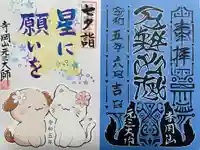 七夕詣
星に
願いを
寺岡山元三大師
令和五年
奉拝
令和五年六月吉日
寺岡山
元三大師